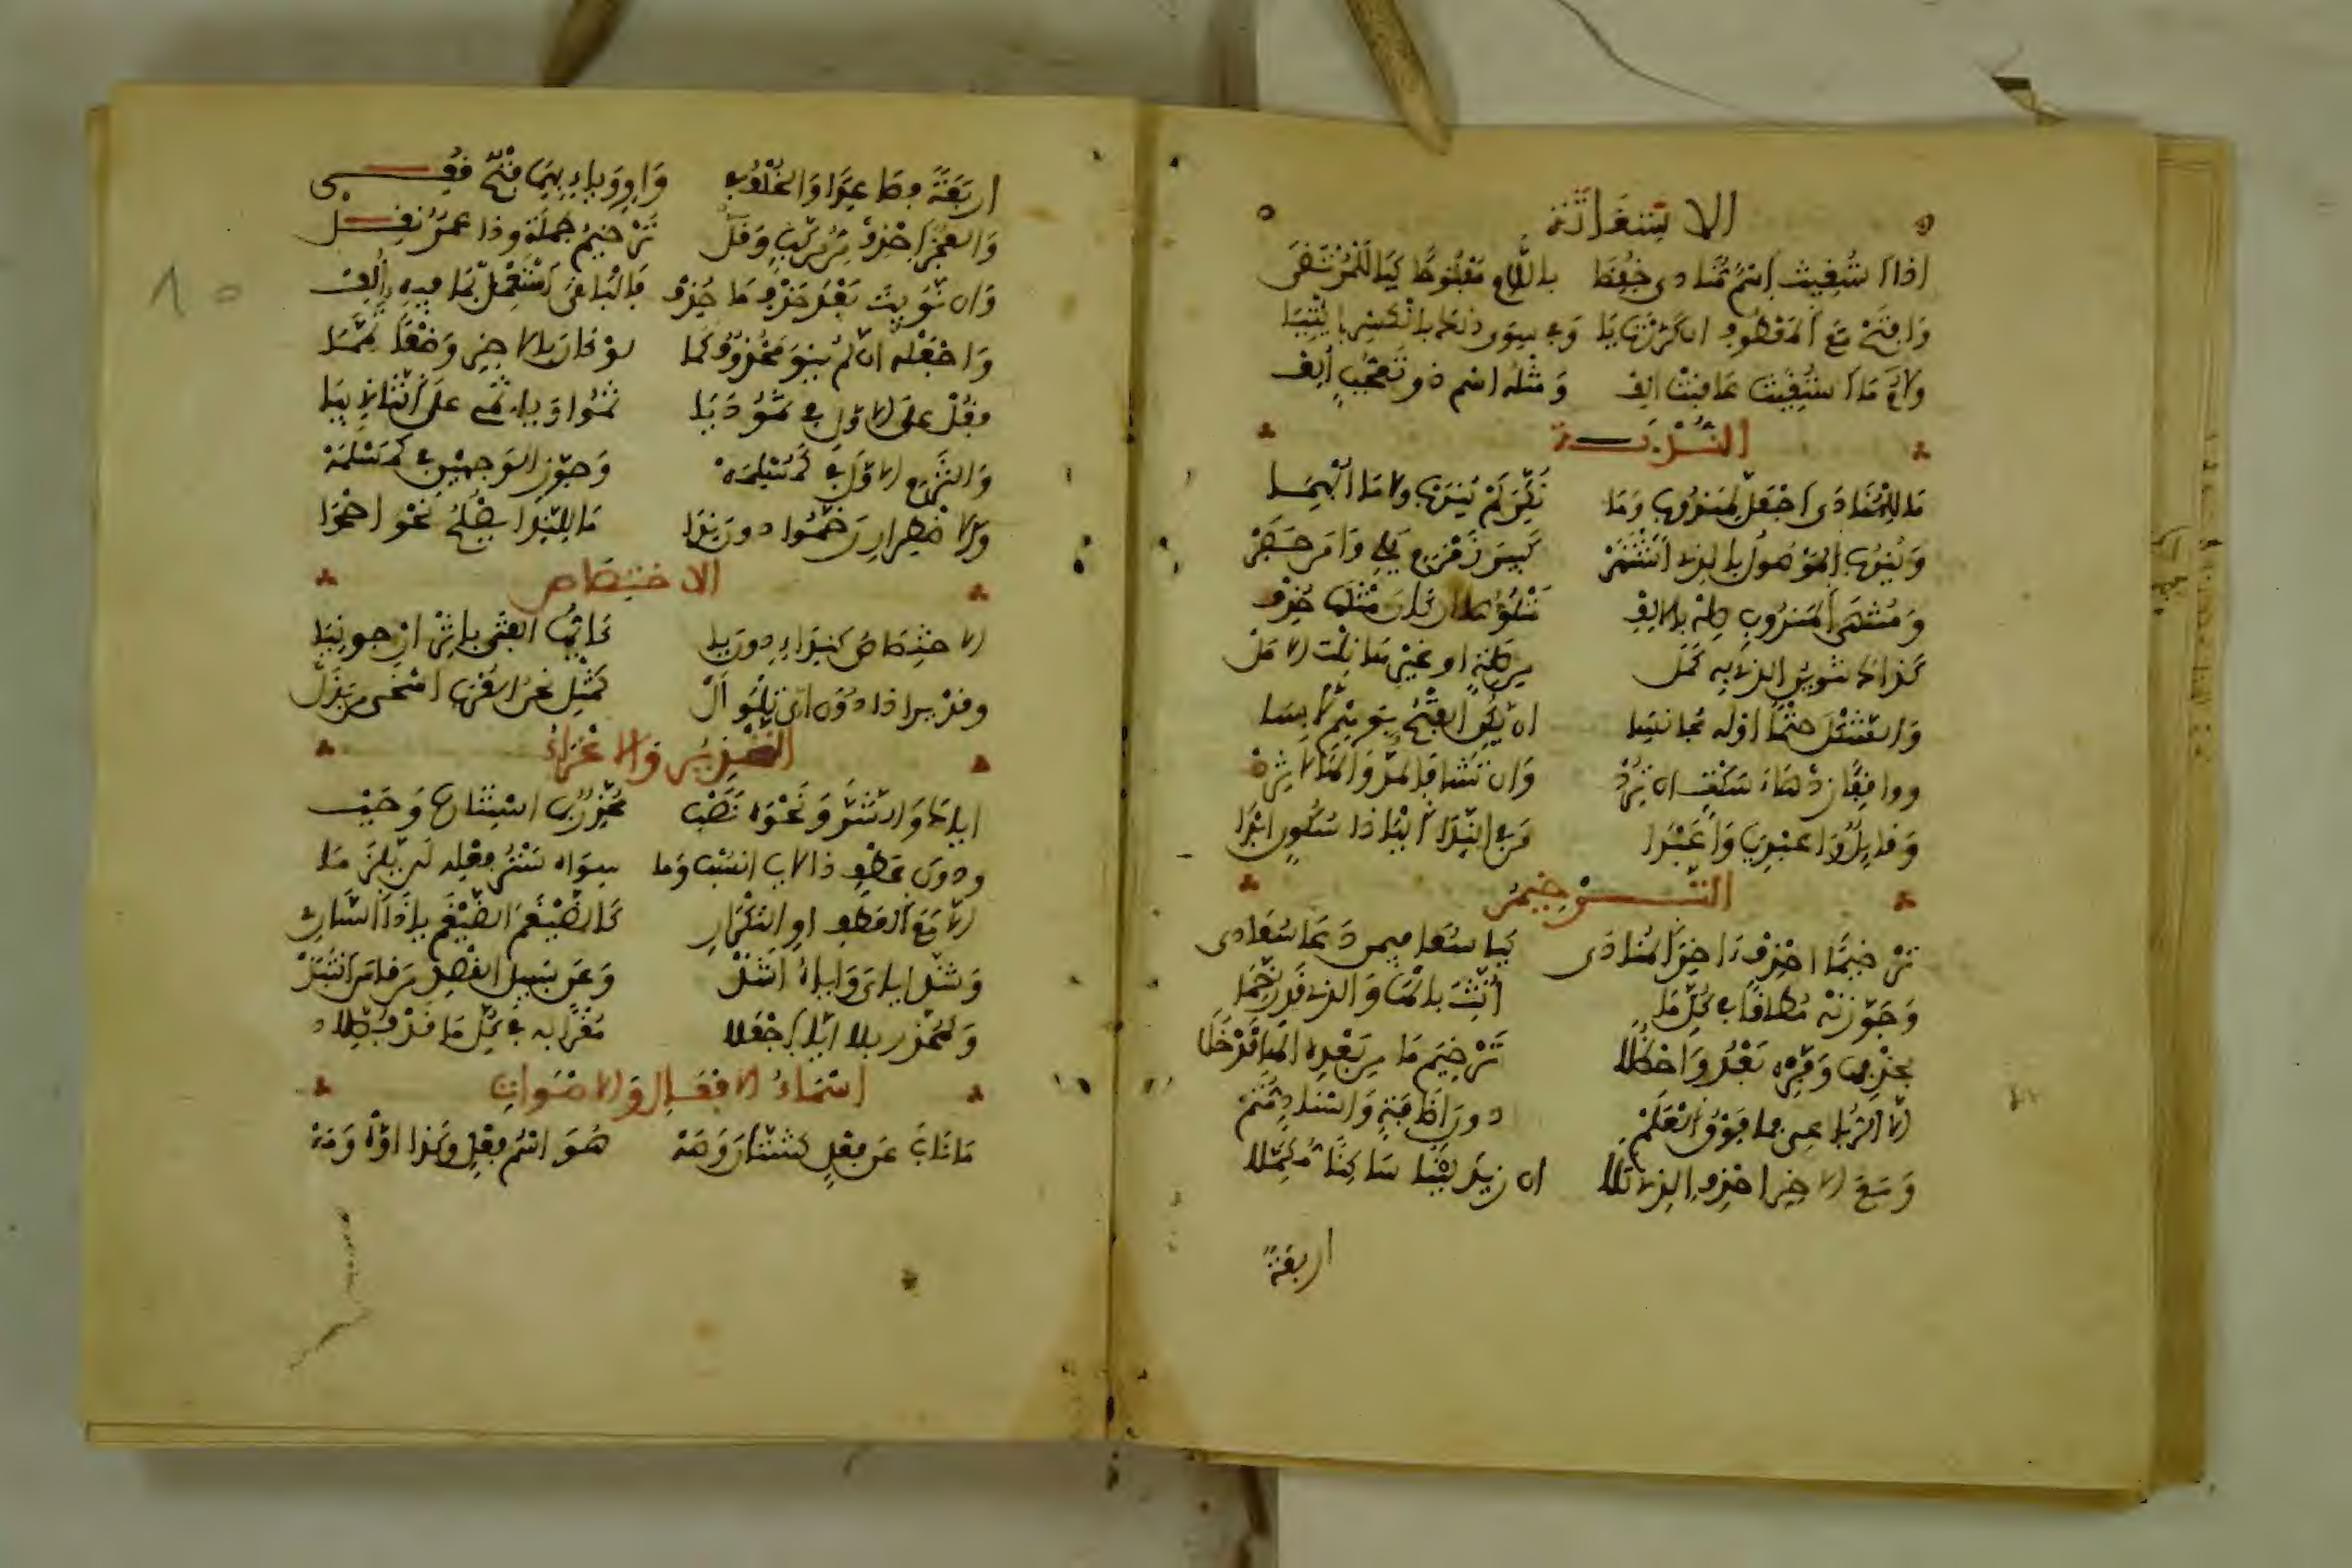 الاستغاثة
اذا استغيث اسم منادى خفضا باللام مفتوحا كيا للمرتضى
وافتح مع المعطوف ان كررت يا وفي سوى ذلك بالكسر ايتيا
ولام ما استغيث عاقبت الف ومثله اسم ذو تعجب الف
الندبة
ما للمنادى اجعل لمندوب وما نكر لم يندب ولا ما ابهما
ويندب الموصول بالذي اشتهر كبير زمزم يلي وا من حفر
ومنتهى المندوب صله بالالف متلوها ان كان مثلها حذف
كذاك تنوين الذي به كمل من صلة او غيرها نلت الامل
والشكل حتما اوله مجانسا ان يكن الفتح بوهم لابسا
وواقفا زد هاء سكت ان ترد وان تشا فالمد والها لا تزد
وقايل وا عبديا وا عبدا من في الندا اليا ذا سكون ابدا
الترخيم
ترخيما احذف اخر المنادى كيا سعا فيمن دعا سعادا
وجوزنه مطلقا في كل ما انث بالها والذي قد رخما
بحذفها وفره بعد واحظلا ترخيم ما من بعده الها قد خلا
الا الرباعي فما فوق العلم دون اضافة واسناد متم
ومع الاخر احذف الذي تلا ان زيد لينا ساكنا مكملا
اربعة
اربعة فصاعدا والخلف في واو وياء بهما فتح قفي
والعجز احذف من مركب وقل ترخيم جملة وذا عمرو نقل
وان نويت بعد حذف ما حذف فالباقي استعمل بما فيه الف
واجعله ان لم ينو محذوف كما لو كان بالاخر وضعا تمما
فقل على الاول في ثمود يا ثمو ويا ثمي على الثاني بيا
والتزم الاول في كمسلمه وجوز الوجهين في كمسلمه
ولاضطرار رخموا دون ندا ما للندا يصلح نحو احمدا
الاختصاص
الاختصاص كنداء دون يا كايها الفتى باثر ارجونيا
وقد يرا ذا دون اي تلو ال كمثل نحن العرب اسخى من بذل
التحذير والاغراء
اياك والشر ونحوه نصب محذر بما استتاره وجب
ودون عطف ذا لايا انسب وما سواه ستر فعله لن يلزما
الا مع العطف او التكرار كالضيغم الضيغم ياذا السار
وشذ اياي واياه اشذ وعن سبيل القصد من قاس انتبذ
وكمحذر بلا ايا اجعلا مغرا به في كل ما قد فصلا
اسماء الافعال والاصوات
ما ناب عن فعل كشتان وصه هو اسم فعل وكذا اوه ومه